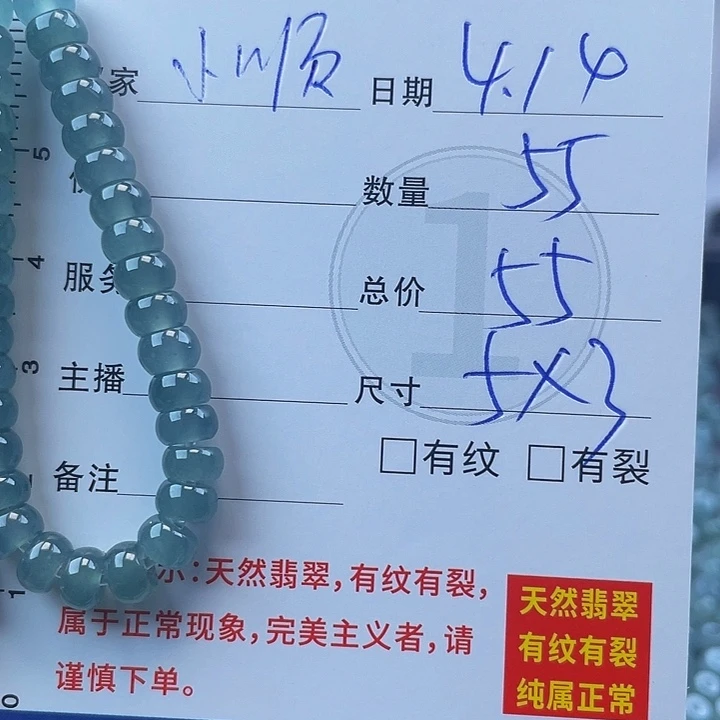 家 小顺 日期 4.14
数量 55
服务 总价 55
主播 尺寸 5×3
备注 □有纹 □有裂
示:天然翡翠,有纹有裂,
属于正常现象,完美主义者,请
谨慎下单。
天然翡翠
有纹有裂
纯属正常
1
5
4
3
1
0